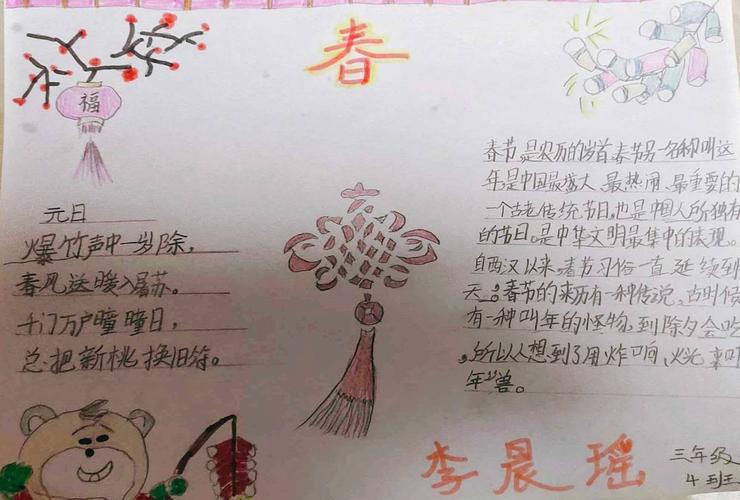 春
福
元日
爆竹声中一岁除，
春风送暖入屠苏。
千门万户曈曈日，
总把新桃换旧符。
春节,是农历的岁首春节另一名称叫过
年,是中国最盛大、最热闹、最重要的
一个古老传统节日,也是中国人所独有
的节日。是中华文明最集中的表现。
自西汉以来,春节习俗一直延续到
天。春节的来历有一种传说,古时候
有一种叫年的怪物,到除夕会吃
,所以人想到了用炸响,火光来吓
年兽。
李晨瑶
三年级
4班